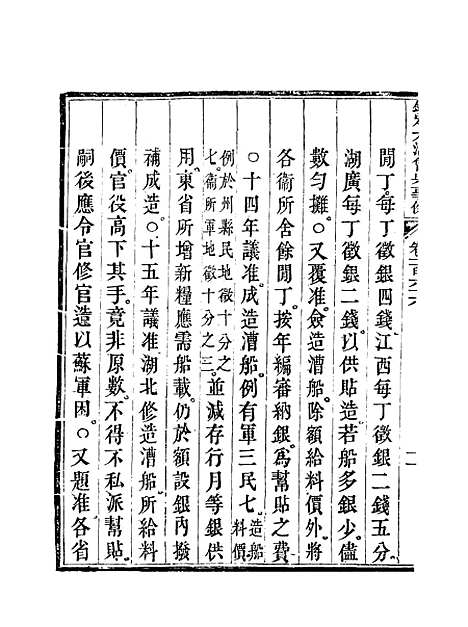 閒丁每丁徵銀四錢江西每丁徵銀二錢五分
湖廣每丁徵銀二錢以供貼造若船多銀少儘
數勻攤○又覆准僉造漕船除額給料價外將
各衞所舍餘閒丁按年編審納銀爲幫貼之費
○十四年議准成造漕船例有軍三民七造船料價
例於州縣民地徵十分之七衞所軍地徵十分之三並減存行月等銀供
用東省所增新糧應需船載仍於額設銀內撥
補成造○十五年議准湖北修造漕船所給料
價官役高下其手竟非原數不得不私派幫貼
嗣後應令官修官造以蘇軍困○又題准各省